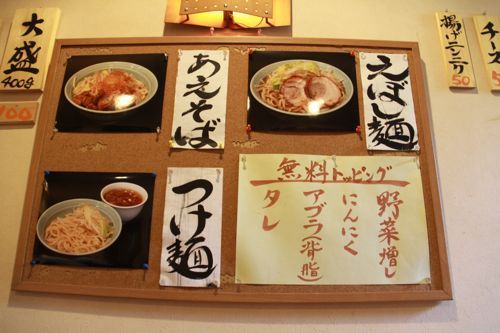 大盛
400g
100
あえそば
えぼし麺
つけ麺
無料トッピング
野菜増し
にんにく
アブラ(背脂)
タレ
揚げニンニク
50
チーズ